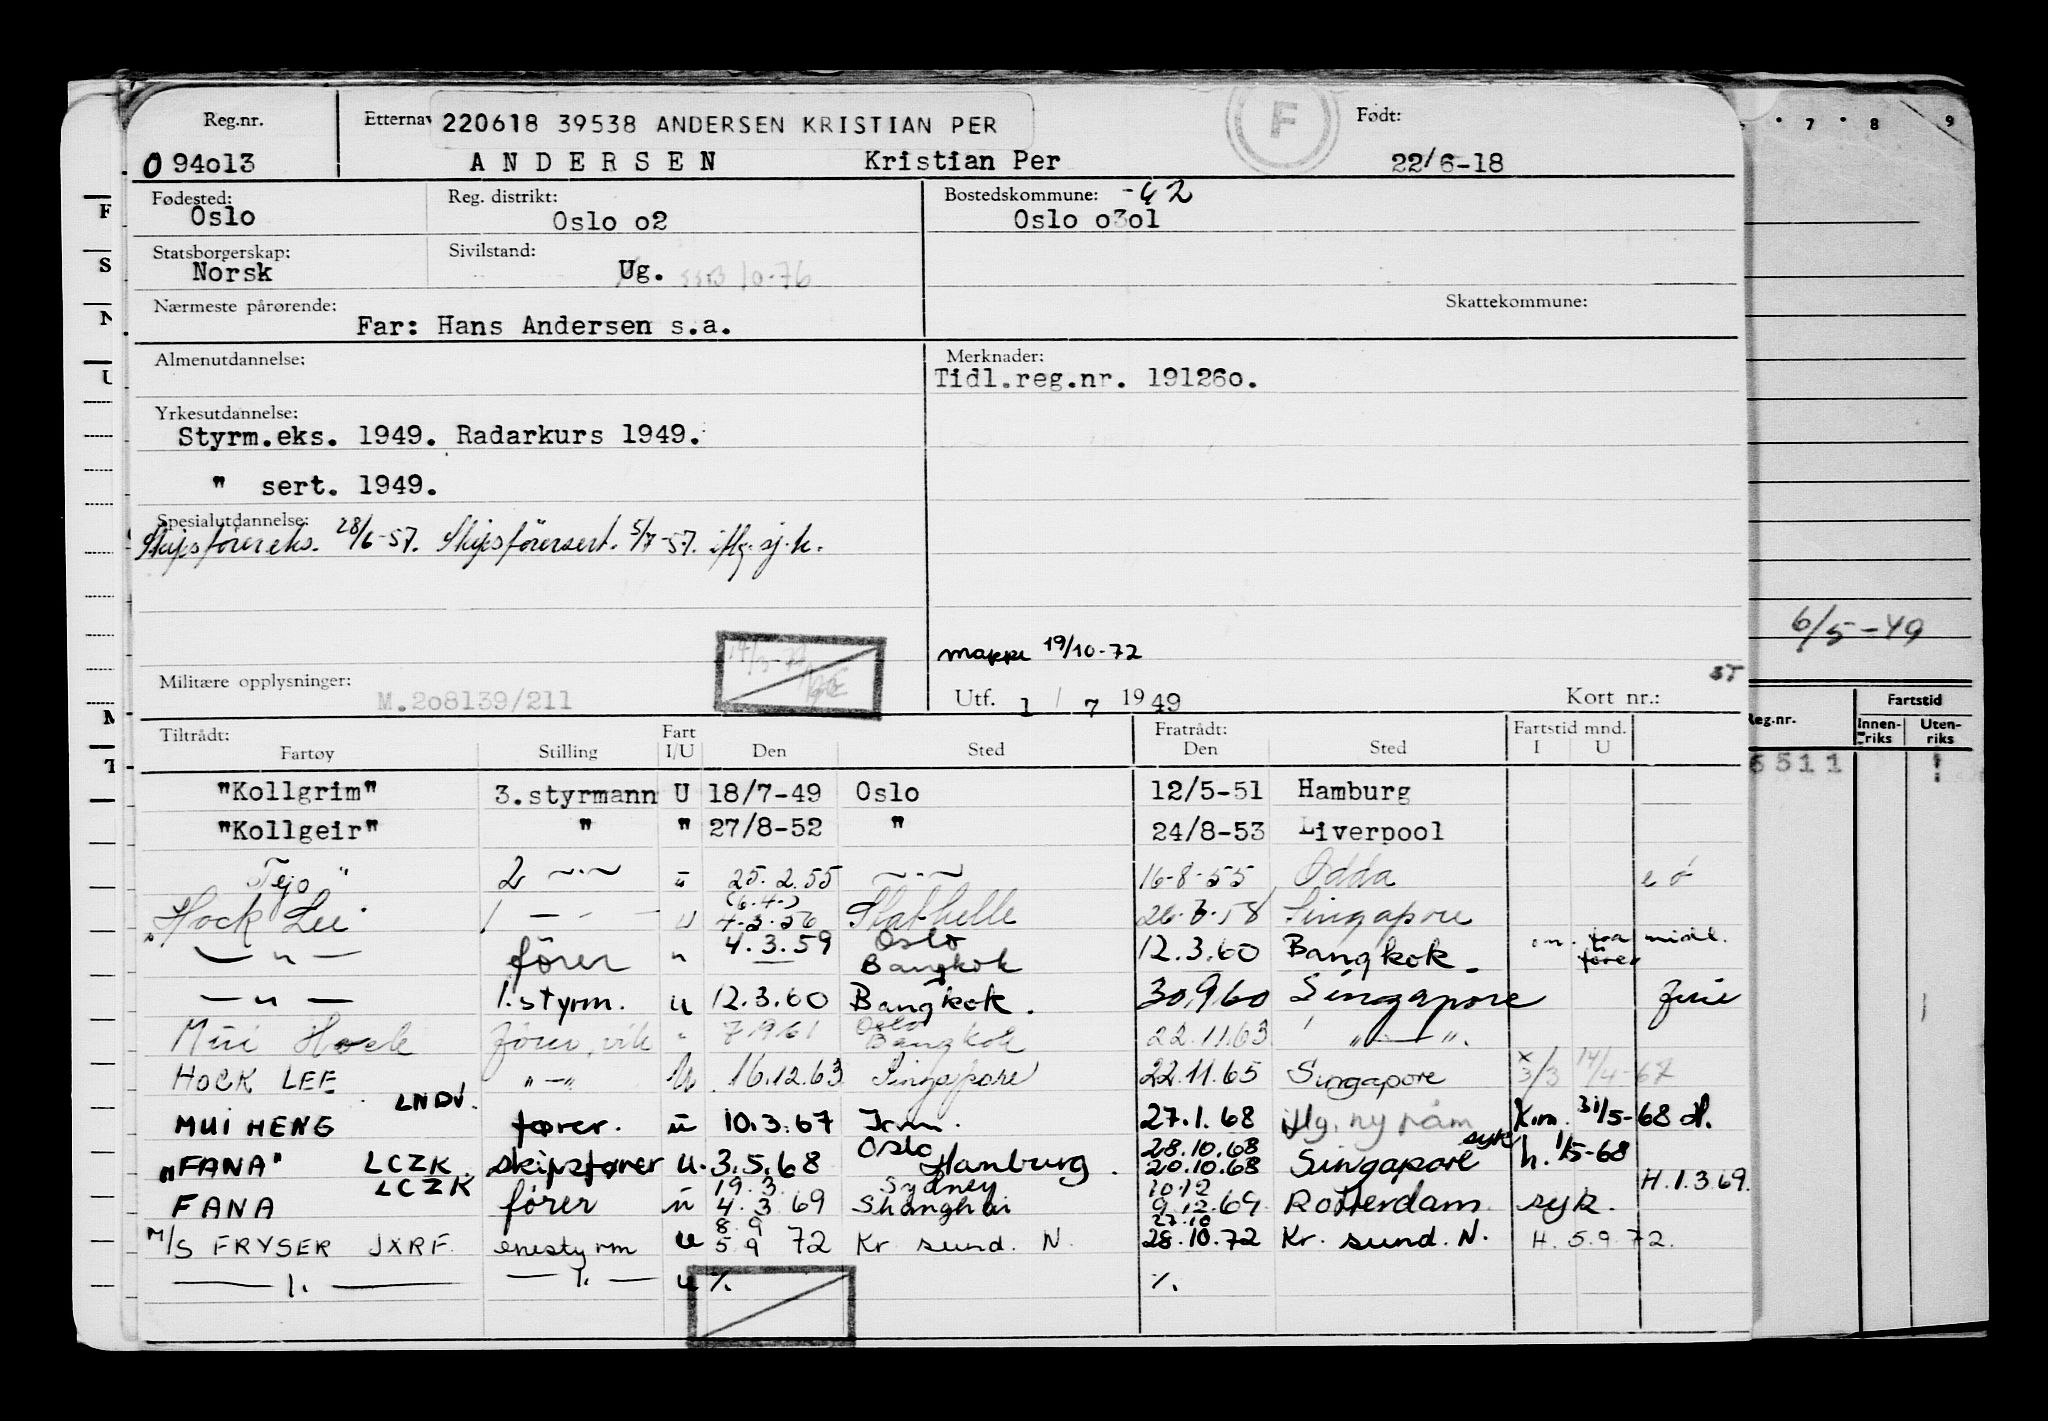 Reg.nr. Etternav 220618 39538 ANDERSEN KRISTIAN PER F Født:
094013 ANDERSEN Kristian Per 22/6-18
Fødested: Reg. distrikt: Bostedskommune: -42
Oslo Oslo o2 Oslo o3o1
Statsborgerskap: Sivilstand:
Norsk Ug. SSB 10-76
Nærmeste pårørende: Skattekommune:
Far: Hans Andersen s.a.
Almenutdannelse: Merknader:
Tidl.reg.nr. 19126o.
Yrkesutdannelse:
Styrm.eks. 1949. Radarkurs 1949.
" sert. 1949.
Spesialutdannelse:
Skipsførereks. 28/6-57. Skipsførersert. 5/7-57. iflg. sj.k.
6/5-49
mappe 19/10-72
Militære opplysninger: M.2o8139/211 Utf. 1 / 7 1949 Kort nr.: ST
Tiltrådt: Fart Fratrådt: Fartstid mnd.
Fartøy Stilling I/U Den Sted Den Sted I U
Reg.nr. Fartstid Innen-riks Uten-riks
6511
"Kollgrim" 3.styrmann U 18/7-49 Oslo 12/5-51 Hamburg
"Kollgeir" " " 27/8-52 " 24/8-53 Liverpool
Tejo " 2 ~·~ u 25.2.55 ~·~ 16-8-55 Odda e ö
(6.4.)
"Hock Lee 1 — - — u 4-3-56 Stathelle 26-3-58 Singapore
— " — fører " 4.3.59 Oslo Bangkok 12.3.60 Bangkok.
— " — 1.styrm. u 12.3.60 Bangkok. 30.9.60 Singapore
Mui Hock fører, vik " 7.9.61 Oslo Bangkok 22.11.63 " — ".
HOCK LEE " — " U 16.12.63 Singapore 22.11.65 Singapore x 3/3 14/4-67
MUI HENG LNDV. fører. u 10.3.67 27.1.68 iflg. ny K.m. 31/5-68
"FANA" LCZK. skipsfører u. 3.5.68 Oslo Hamburg. 28.10.68 20.10.68 Singapore syk h. 1/5-68
FANA LCZK fører u 19.3. 4.3.69 Sydney Shanghai 10.12 9.12.69 Rotterdam syk. H.1.3.69.
M/S FRYSER JXRF. enestyrm u 8.9 5.9 72 Kr. sund. N. 27.10 28.10.72 Kr. sund. N. H. 5.9.72.
— 1. — — 1. — u %. %.